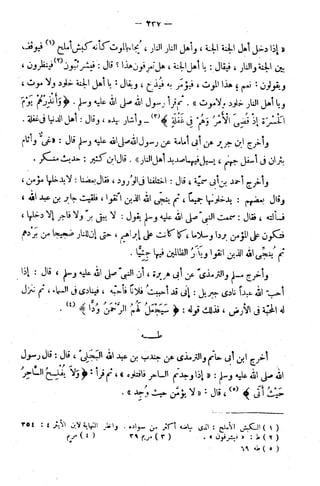 - ٣٣٧ -
« إذا دخل أهل الجنة الجنة ، وأهل النار النار ، يجاء بالموت كأنه كبش أملح (١) فيوقف
بين الجنة والنار ، فيقال : يا أهل الجنة ، هل تعرفون هذا ؟ قال : فيشرئبون (٢) فينظرون ،
ويقولون : نعم ؛ هذا الموت ، فيؤمر به فيذبح ، ويقال : يا أهل الجنة خلود ولا موت ،
ويا أهل النار خلود بلا موت » . ثم قرأ رسول الله صلى الله عليه وسلم . ﴿ وَأَنْذِرْهُمْ يَوْمَ
الْحَسْرَةِ إِذْ قُضِيَ الْأَمْرُ وَهُمْ فِي غَفْلَةٍ ﴾ (٣) - وأشار بيده ، وقال : أهل الدنيا في غفلة .
وأخرج ابن جرير عن أبى أمامة عن رسول الله صلى الله عليه وسلم قال : « غىّ وأثام
بئران فى أسفل جهنم ، يسيل فيهما صديد أهل النار » . قال ابن كثير : حديث منكر .
وأخرج أحمد بن أبى سمية ، قال : اختلفنا فى الورود ، فقال بعضنا : لا يدخلها مؤمن ،
وقال بعضهم : يدخلونها جميعا ، ثم ينجى الله الذين اتقوا ، فلقيت جابر بن عبد الله ،
فسألته ، فقال : سمعت النبى صلى الله عليه وسلم يقول : لا يبقى برّ ولا فاجر إلا دخلها ،
فتكون على المؤمن بردا وسلاما ، كما كانت على إبراهيم ، حتى إن للنار ضجيجا من بردهم
ثم ينجى الله الذين اتقوا ويذر الظالمين فيها جثيّا .
وأخرج مسلم والترمذى عن أبى هريرة ، أن النبى صلى الله عليه وسلم ، قال : إذا
أحب الله عبداً نادى جبريل : إنى قد أحببت فلاناً فأحبه ، فينادى فى السماء ، ثم تنزل
له المحبة فى الأرض ، فذلك قوله : ﴿ سَيَجْعَلُ لَهُمُ الرَّحْمَنُ وُدًّا ﴾ (٤) .
طـــه
أخرج ابن أبى حاتم والترمذى عن جندب بن عبد الله البَجَلىّ ، قال : قال رسول
الله صلى الله عليه وسلم : « إذا وجدتم الساحر فاقتلوه » ، ثم قرأ : ﴿ وَلَا يُفْلِحُ السَّاحِرُ
حَيْثُ أَتَى ﴾ (٥) ، قال : « لا يؤمن حيث وُجد » .
(١) الكبش الأملح : الذى بياضه أكثر من سواده . وانظر النهاية لابن الأثير ٤ : ٣٥٤
(٢) ط : « فيشرفون » . (٣) مريم ٣٩ (٤) مريم
(٥) طه ٦٩